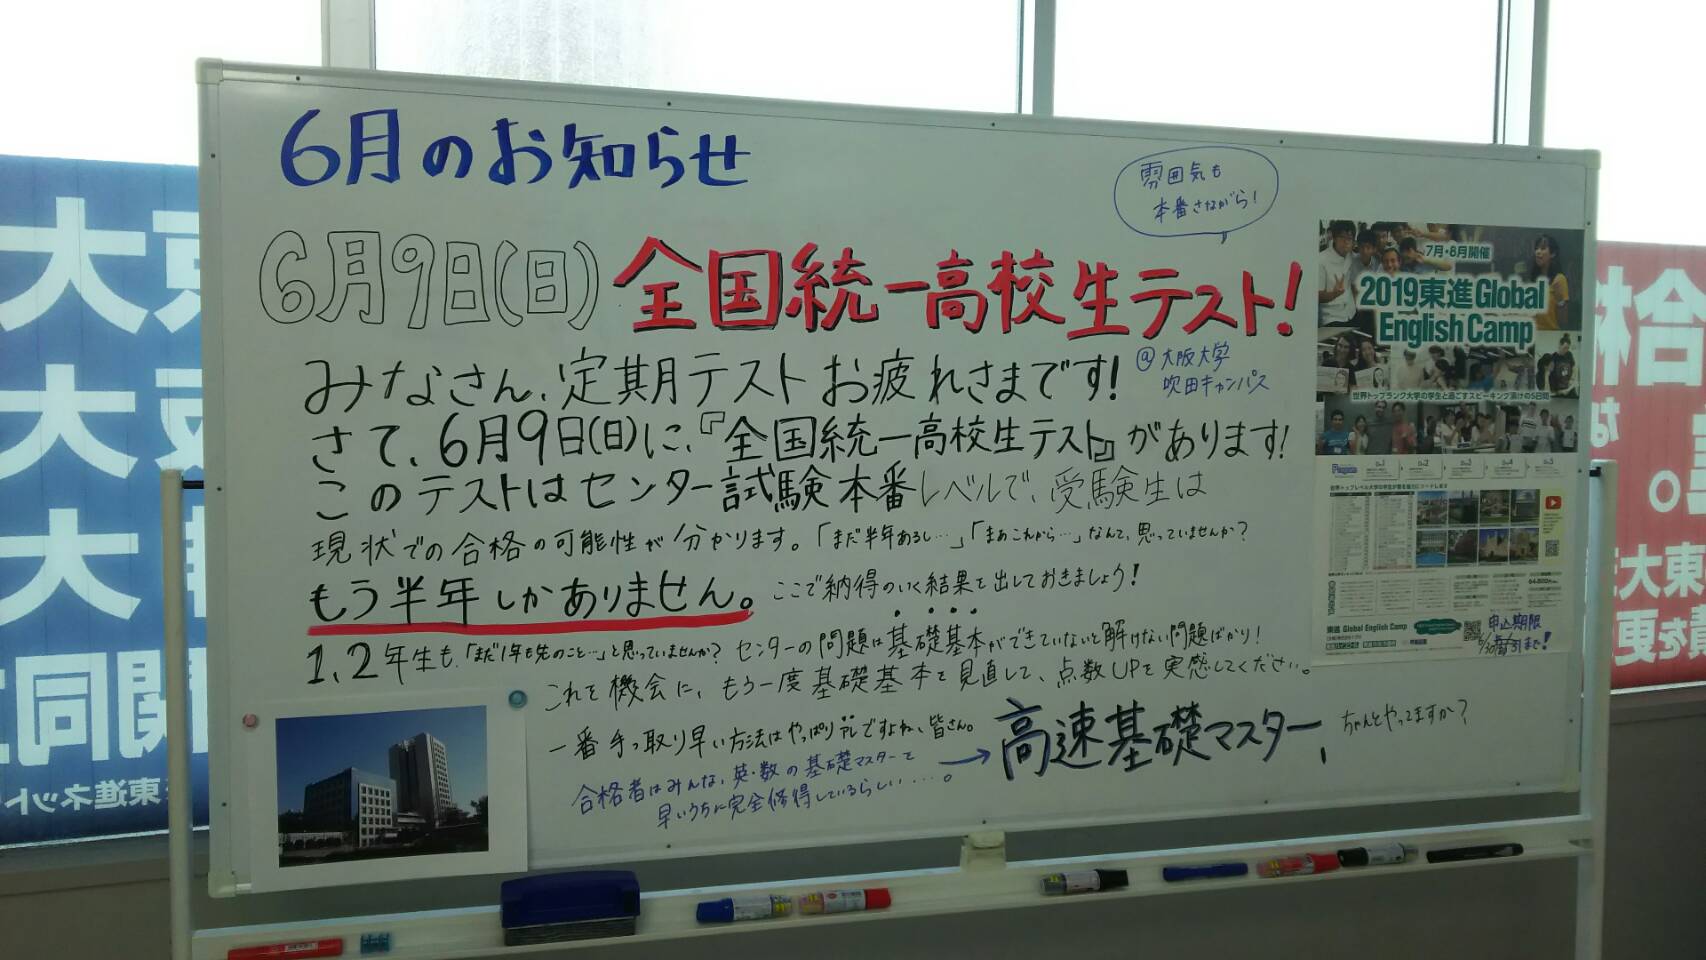 6月のお知らせ
雰囲気も
本番さながら!
6月9日(日) 全国統一高校生テスト!
@大阪大学
吹田キャンパス
みなさん、定期テストお疲れさまです!
さて、6月9日(日)に、『全国統一高校生テスト』があります!
このテストはセンター試験本番レベルで、受験生は
現状での合格の可能性が分かります。「まだ半年あるし…」「まあこれから…」なんて、思っていませんか?
もう半年しかありません。ここで納得のいく結果を出しておきましょう!
1、2年生も、「まだ1年も先のこと…」と思っていませんか? センターの問題は基礎基本ができていないと解けない問題ばかり!
これを機会に、もう一度基礎基本を見直して、点数UPを実感してください。
一番手っ取り早い方法はやっぱりアレですよね、皆さん。
→高速基礎マスター、ちゃんとやってますか?
合格者はみんな、英・数の基礎マスターを
早いうちに完全修得しているらしい……。
7月・8月開催
2019東進 Global
English Camp
世界トップランク大学の学生と過ごすスピーキング漬けの5日間
東進 Global English Camp
申込期限
6/30 まで!
大
大
大
関同
東進ネット
合格
東大